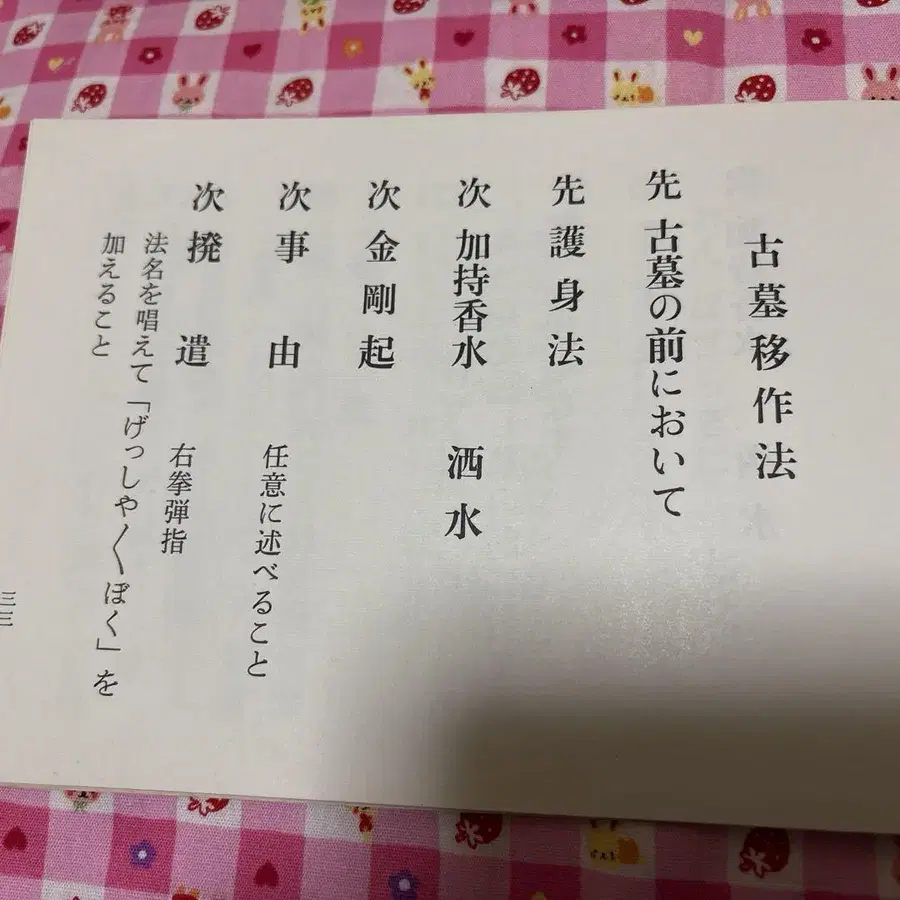 古墓移作法
先 古墓の前において
先 護身法
次 加持香水 洒水
次 金剛起
次 事由 任意に述べること
次 撥遣 右拳弾指
法名を唱えて「げっしゃ〱ぼく」を
加えること
三三